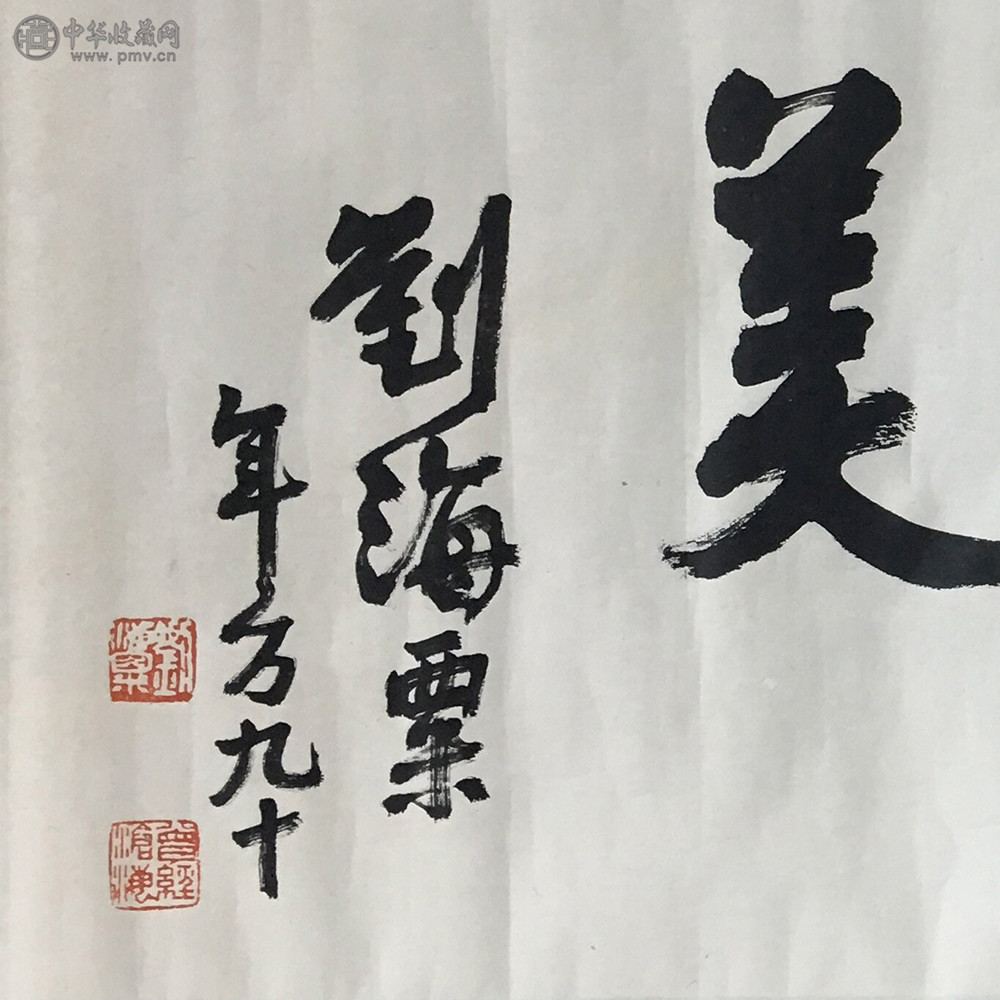 中华收藏网
www.pmv.cn
美
劉海粟
年方九十
劉海粟
曾經滄海